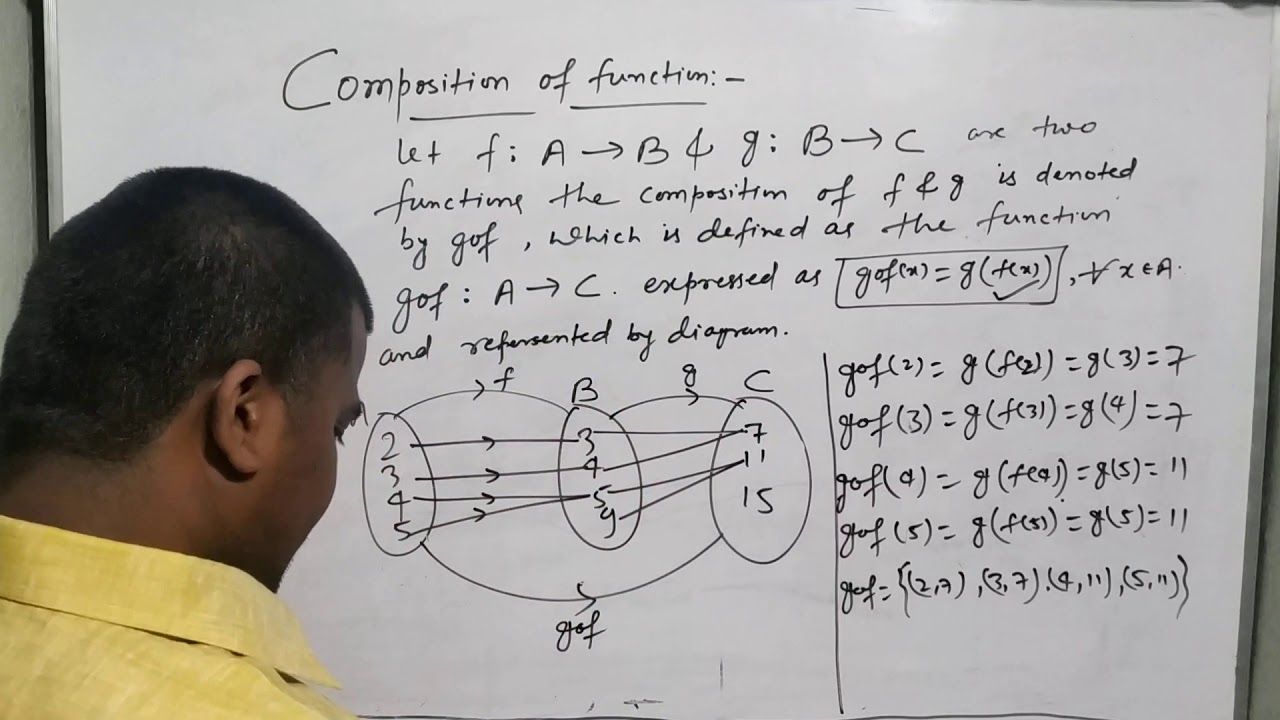 Composition of function:-
Let f: A → B & g: B → C are two
functions the composition of f & g is denoted
by gof, which is defined as the function
gof : A → C. expressed as gof(x) = g(f(x)), ∀ x ∈ A.
and represented by diagram.
f
g
B
C
2
3
4
5
3
4
5
9
7
11
15
gof
gof(2) = g(f(2)) = g(3) = 7
gof(3) = g(f(3)) = g(4) = 7
gof(4) = g(f(4)) = g(5) = 11
gof(5) = g(f(5)) = g(5) = 11
gof = {(2,7), (3,7), (4,11), (5,11)}